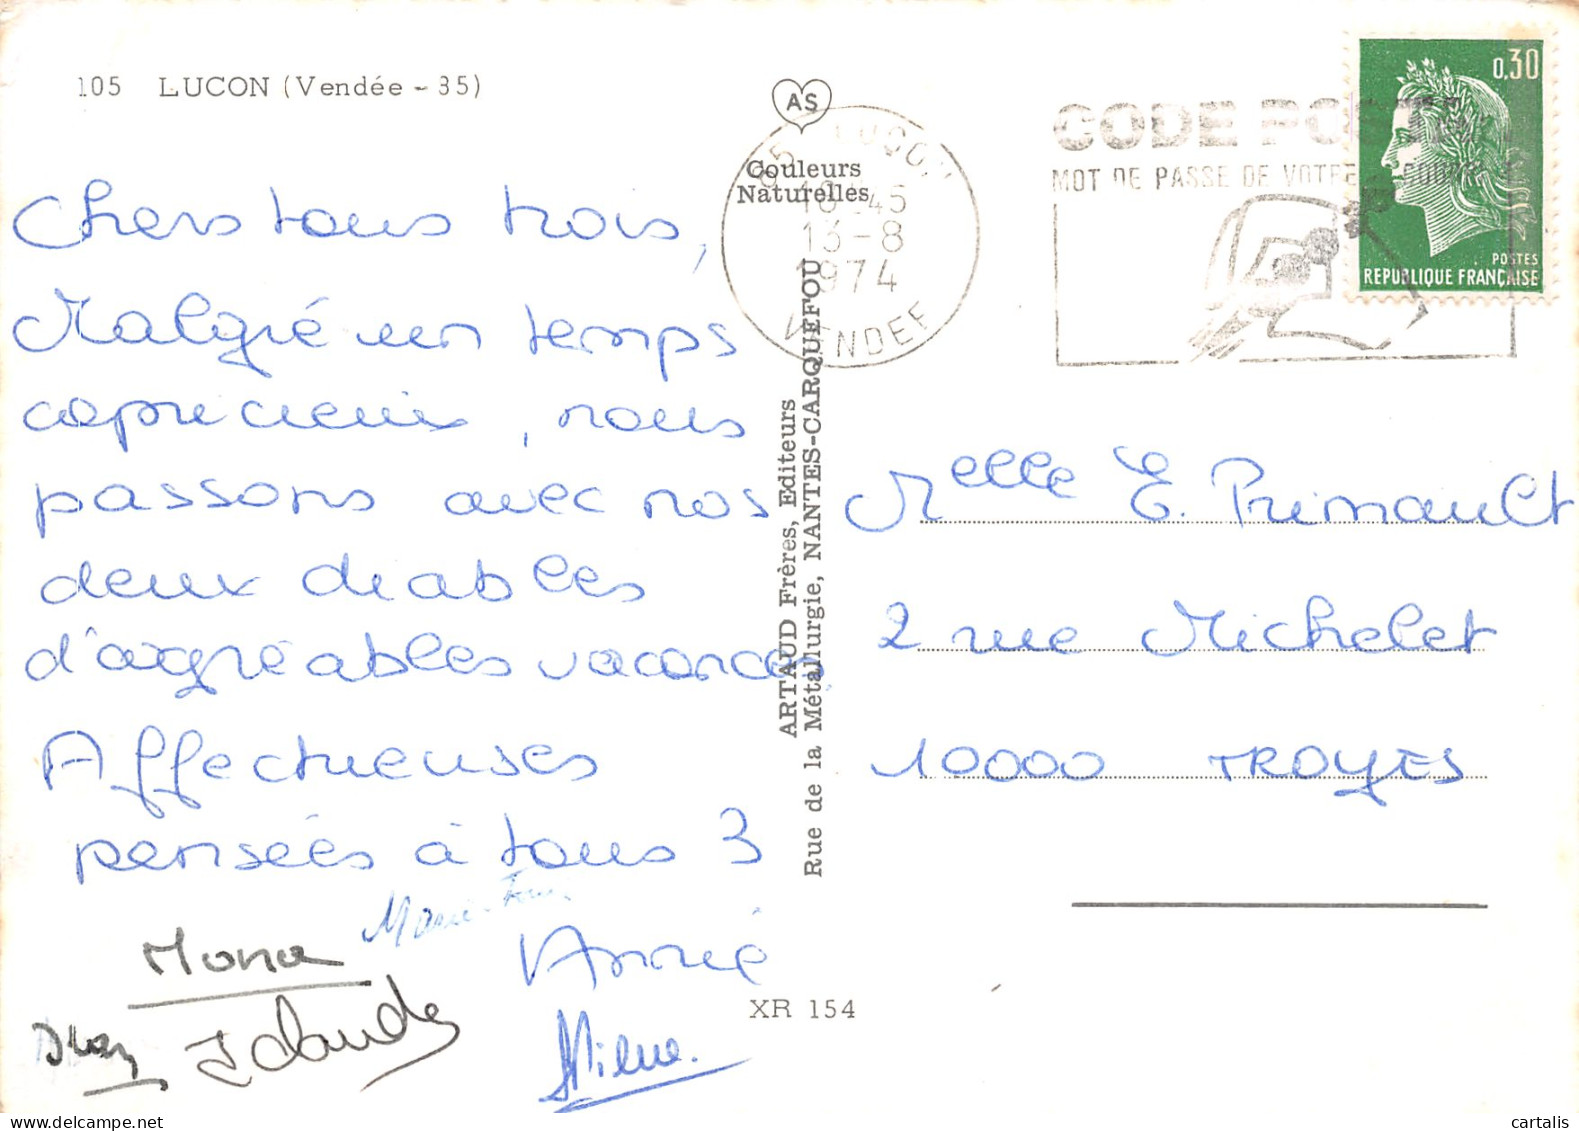 105 LUCON (Vendée - 85)
AS
Couleurs
Naturelles
85 LUÇON
18 45
13-8
1974
VENDEE
CODE POSTAL
MOT DE PASSE DE VOTRE COURRIER
0,30
POSTES
REPUBLIQUE FRANÇAISE
Chers tous trois,
Malgré un temps
capricieux, nous
passons avec nos
deux diables
d'agréables vacances
Affectueuses
pensées à tous 3
Mona
Annie
JClaude
Pierre.
ARTAUD Frères, Editeurs
Rue de la Métallurgie, NANTES-CARQUEFOU
XR 154
Melle E. Prinault
2 rue Michelet
10000 TROYES
cartalis